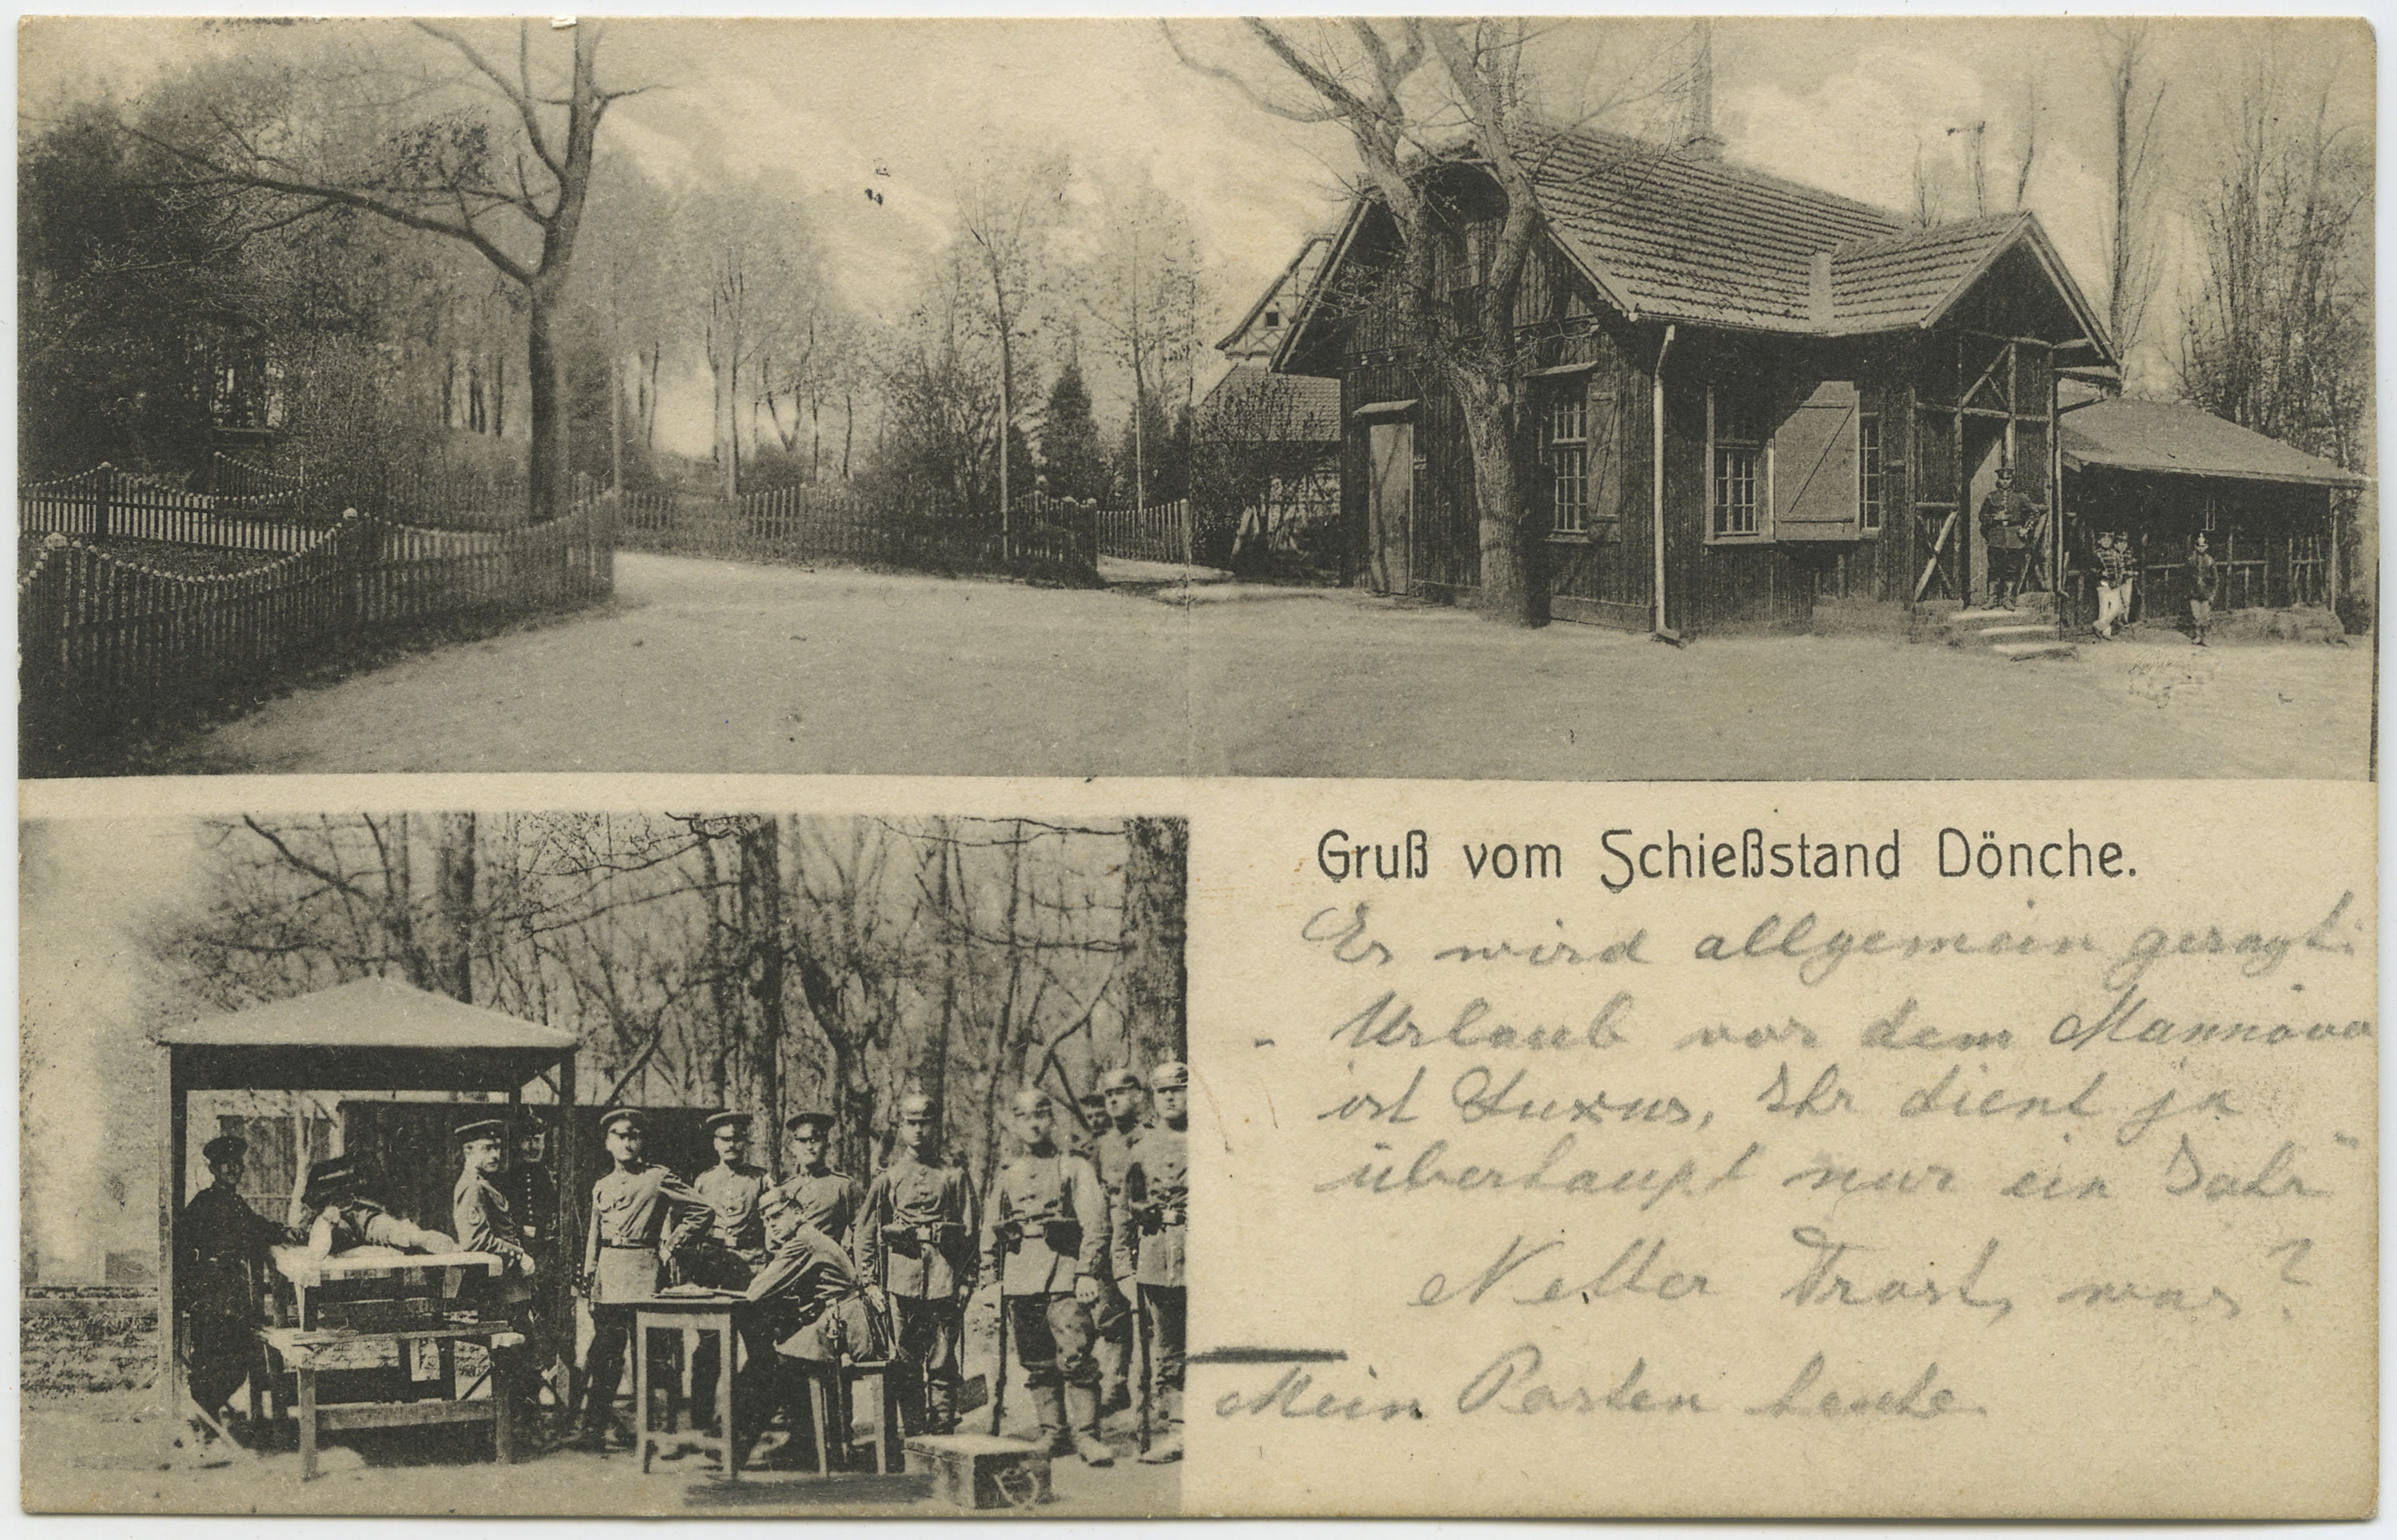 Gruß vom Schießstand Dönche.
Es wird allgemein gesagt:
- Urlaub vor dem Mannöver
ist Luxus, Ihr dient ja
überhaupt nur ein Jahr"
Netter Trost, was?
Mein Posten heute